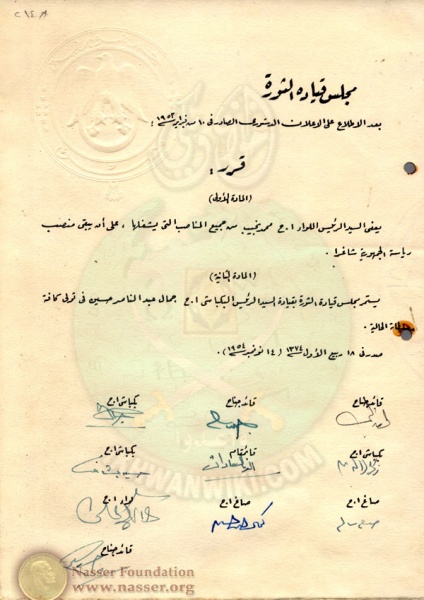 مجلس قيادة الثورة
بعد الاطلاع على الاعلان الدستورى الصادر فى ١٠ من فبراير ١٩٥٣ :
قرر :
(المادة الأولى)
يعفى السيد الرئيس اللواء ا.ح محمد نجيب من جميع المناصب التى يشغلها ، على أن يبقى منصب
رياسة الجمهورية شاغرا .
(المادة الثانية)
يستمر مجلس قيادة الثورة بقيادة السيد الرئيس البكباشى ا.ح جمال عبد الناصر حسين فى تولى كافة
الحالية .
صدر فى ١٨ ربيع الأول ١٣٧٤ (١٤ نوفمبر ١٩٥٤) .
قائد جناح قائد جناح بكباشى ا.ح
بكباشى ا.ح قائمقام بكباشى ا.ح
صاغ ا.ح صاغ ا.ح لواء ا.ح
قائد جناح
IKHWANWIKI.COM
Nasser Foundation
www.nasser.org